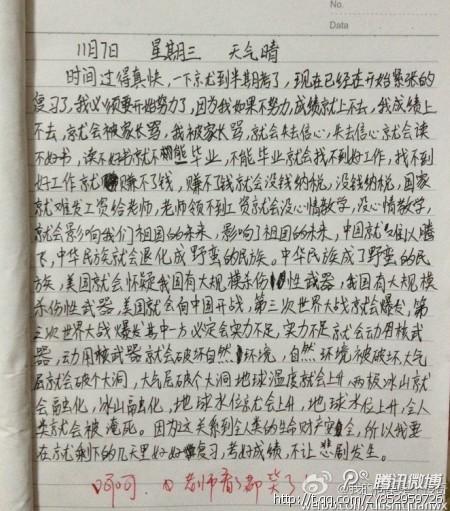 No.
Data
11月7日 星期三 天气晴
时间过得真快，一下就到半期考了，现在已经在开始紧张的
复习了，我必须要开始努力了，因为我如果不努力，成绩就上不去，我成绩上
不去，就会被家长骂，我被家长骂，就会失去信心，失去信心就会读
不好书，读不好书就不能毕业，不能毕业就会找不到好工作，找不到
好工作就赚不了钱，赚不了钱就会没钱纳税，没钱纳税，国家
就难发工资给老师，老师领不到工资就会没心情教学，没心情教学，
就会影响我们祖国的未来，影响了祖国的未来，中国就难以腾
飞，中华民族就会退化成野蛮的民族。中华民族成了野蛮的民
族，美国就会怀疑我国有大规模杀伤性武器，我国有大规模
杀伤性武器，美国就会向中国开战，第三次世界大战就会爆发，第
三次世界大战爆发其中一方必定会实力不足，实力不足就会动用核武
器，动用核武器就会破坏自然环境，自然环境被破坏，大气
层就会破个大洞，大气层破个大洞地球温度就会上升，两极冰山就
会融化，冰山融化，地球水位就会上升，地球水位上升，全人
类就会被淹死。因为这关系到全人类的生命财产安全，所以我要
在就剩下的几天里好好复习，考好成绩，不让悲剧发生。
呵呵．老师看了都笑了
腾讯微博
http://t.qq.com/Z7852959726